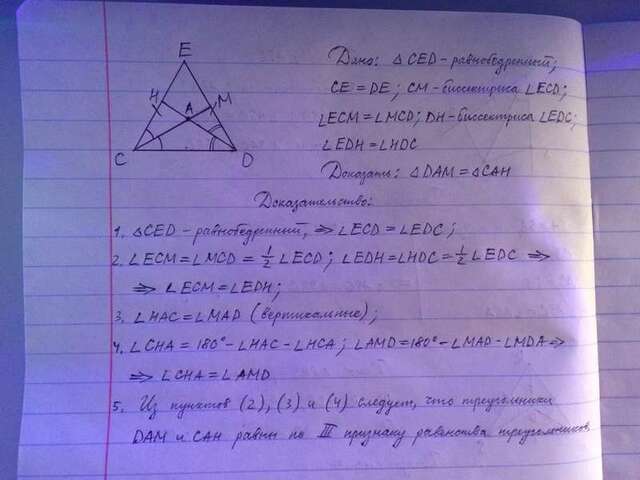 E
H
M
A
C
D
Дано: △CED - равнобедренный;
CE = DE; CM - биссектриса ∠ECD;
∠ECM = ∠MCD; DH - биссектриса ∠EDC;
∠EDH = ∠HDC
Доказать: △DAM = △CAH
Доказательство:
1. △CED - равнобедренный, ⇒ ∠ECD = ∠EDC;
2. ∠ECM = ∠MCD = 1/2 ∠ECD; ∠EDH = ∠HDC = 1/2 ∠EDC ⇒
⇒ ∠ECM = ∠EDH;
3. ∠HAC = ∠MAD (вертикальные);
4. ∠CHA = 180° - ∠HAC - ∠HCA; ∠AMD = 180° - ∠MAD - ∠MDA ⇒
⇒ ∠CHA = ∠AMD
5. Из пунктов (2), (3) и (4) следует, что треугольники
DAM и CAH равны по III признаку равенства треугольников.